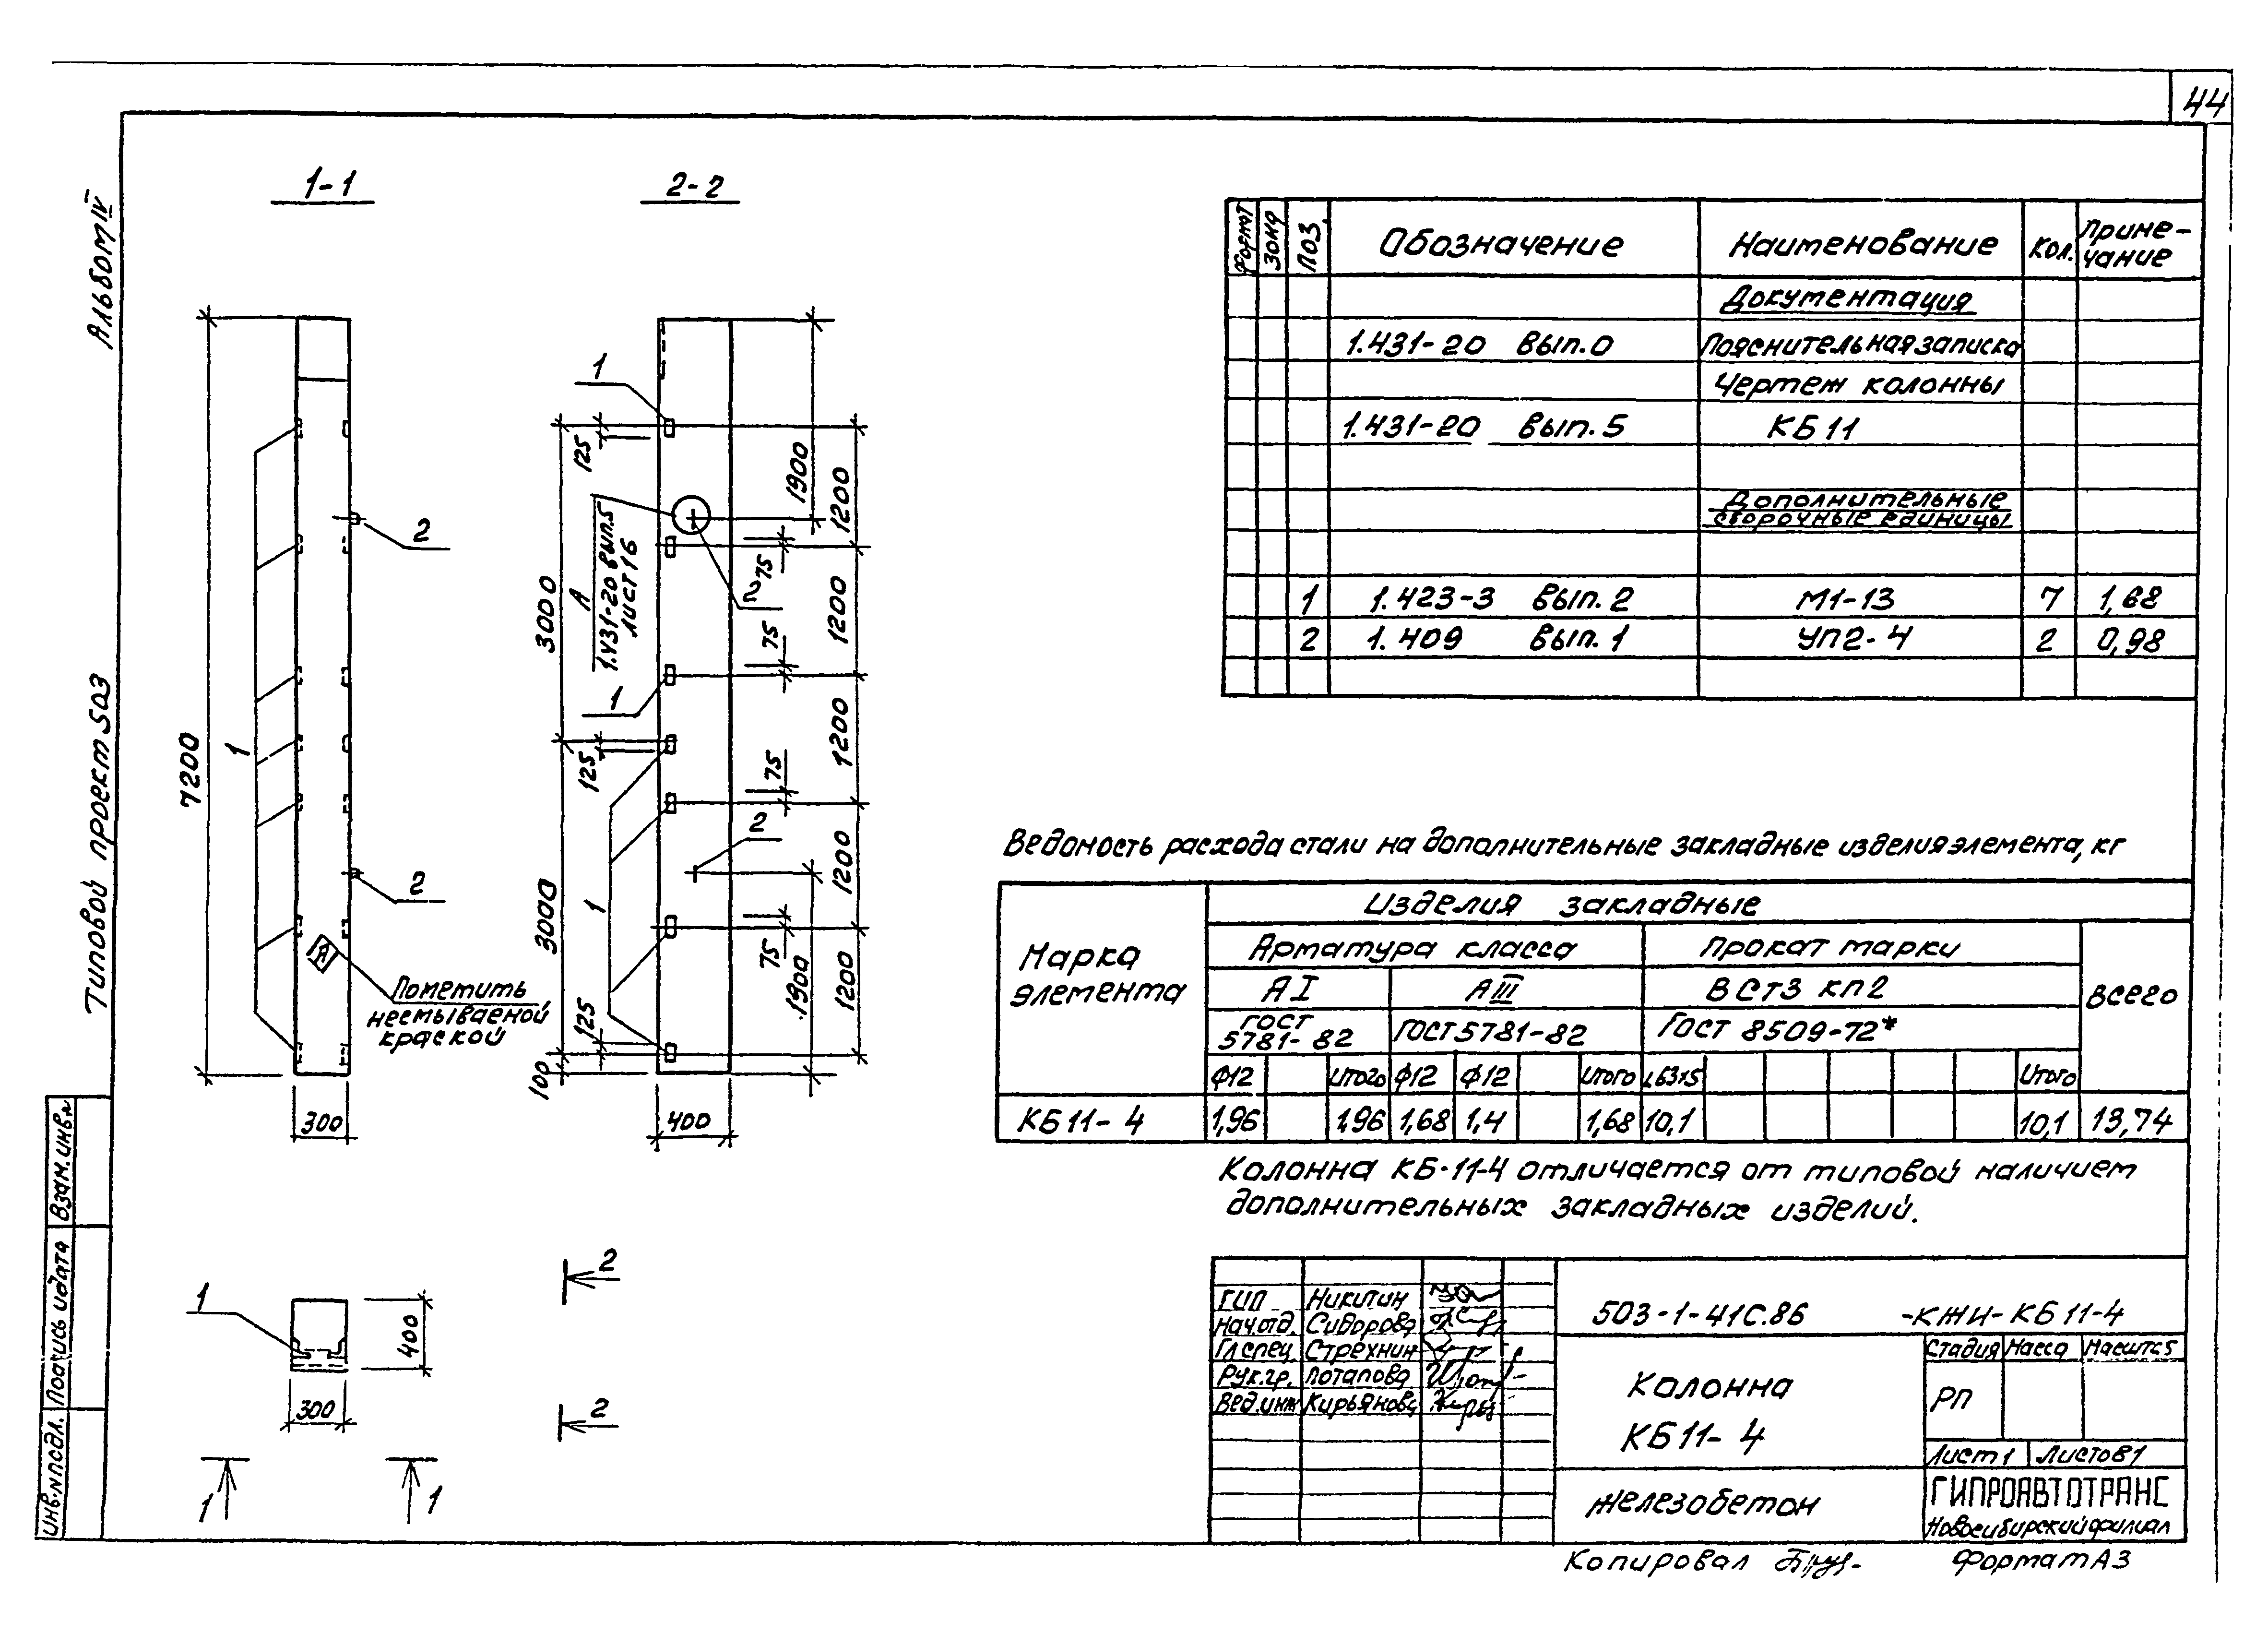 44
Альбом IV
Типовой проект 503
1-1
2-2
1
125
1900
1200
2
А
1.431-20 вып.5
лист 16
75
2
3000
1200
75
1
7200
1
125
75
1200
2
1200
2
3000
1
75
1900
1200
А
Пометить
несмываемой
краской
125
100
300
400
1
400
300
2
2
1
1
Формат
Зона
Поз.
Обозначение
Наименование
Кол.
Приме-
чание
Документация
1.431-20 вып.0 Пояснительная записка
Чертеж колонны
1.431-20 вып.5 КБ11
Дополнительные
сборочные единицы
1 1.423-3 вып.2 М1-13 7 1,68
2 1.409 вып.1 УП2-4 2 0,98
Ведомость расхода стали на дополнительные закладные изделия элемента, кг
Марка
элемента
Изделия закладные
Арматура класса Прокат марки
АI АIII ВСт3 кп2 Всего
ГОСТ
5781-82 ГОСТ 5781-82 ГОСТ 8509-72*
Ф12 Итого Ф12 Ф12 Итого L63х5 Итого
КБ11-4 1,96 1,96 1,68 1,4 1,68 10,1 10,1 13,74
Колонна КБ-11-4 отличается от типовой наличием
дополнительных закладных изделий.
ГИП Никитин
Нач.отд. Сидорова
Гл.спец. Стрехнин
Рук.гр. Потапова
Вед.инж Кирьянова
503-1-41С.86 -КЖИ-КБ11-4
Колонна
КБ11-4
Стадия Масса Масштаб
РП
Лист 1 Листов 1
Железобетон
ГИПРОАВТОТРАНС
Новосибирский филиал
Копировал
Формат А3
Взам.инв.№
Подпись и дата
Инв.№ подл.